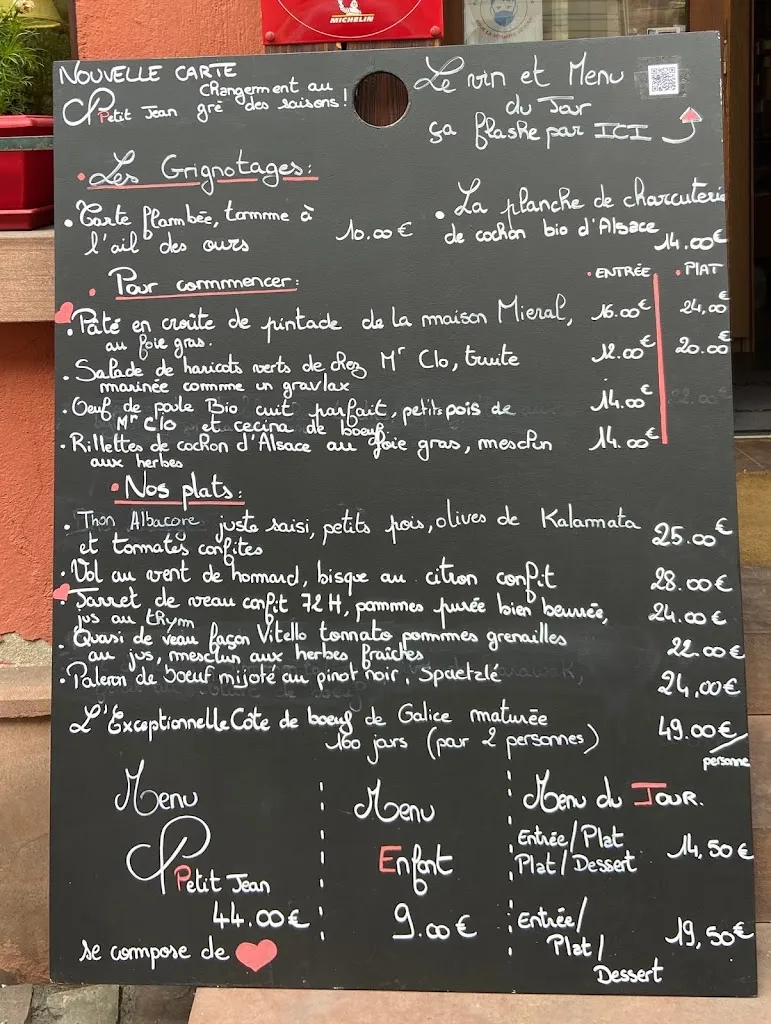 MICHELIN
NOUVELLE CARTE
Changement au
Petit Jean gré des saisons!
Le vin et Menu
du Jour
ça flashe par ICI
Les Grignotages:
Tarte flambée, tomme à
l'ail des ours
10.00€
La planche de charcuterie
de cochon bio d'Alsace
14.00€
Pour commencer:
ENTRÉE PLAT
Pâté en croûte de pintade de la maison Mieral, 16.00€ 24,00
au foie gras.
Salade de haricots verts de chez Mr Clo, truite 12.00€ 20.00€
marinée comme un gravlax
Oeuf de poule Bio cuit parfait, petits pois de 14.00€ 22.00€
Mr Clo et cecina de boeuf.
Rillettes de cochon d'Alsace au foie gras, mesclun 14.00€
aux herbes
Nos plats:
Thon Albacore juste saisi, petits pois, olives de Kalamata 25.00€
et tomates confites
Vol au vent de homard, bisque au citron confit 28.00€
Jarret de veau confit 72H, pommes purée bien beurrée, 24.00€
jus au thym
Quasi de veau façon Vitello tonnato pommes grenailles 22.00€
au jus, mesclun aux herbes fraîches
Paleron de boeuf mijoté au pinot noir, Spaetzlé 24,00€
L'Exceptionnelle Côte de boeuf de Galice maturée 49.00€/
160 jours (par 2 personnes) personne
Menu
Petit Jean
44.00€
se compose de
Menu
Enfant
9.00€
Menu du Jour.
Entrée/Plat
Plat/Dessert
14,50€
Entrée/
Plat/
Dessert
19,50€